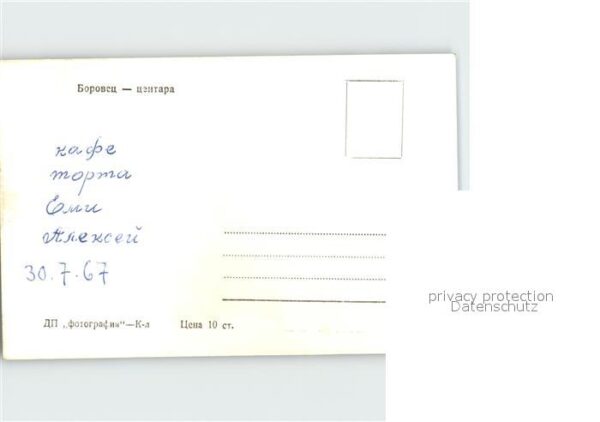 Боровец — центара
кафе
торта
Еми
Алексей
30.7.67
ДП „фотография"—К-л Цена 10 ст.
privacy protection
Datenschutz